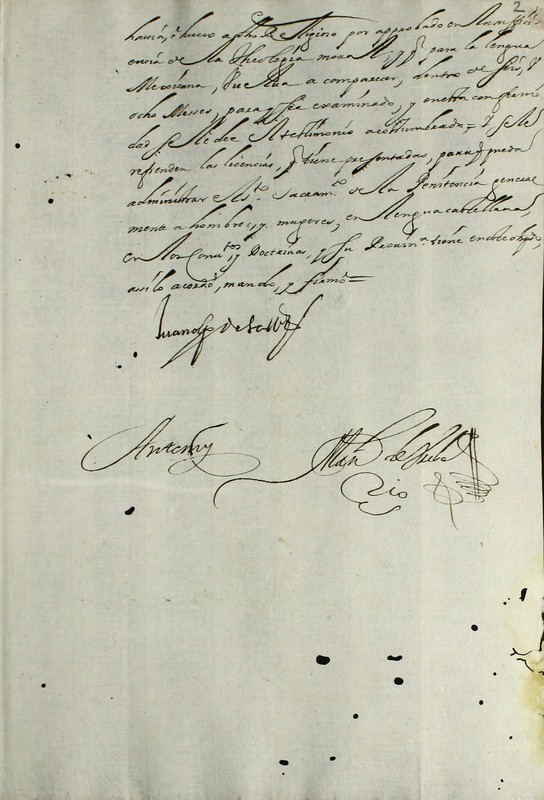 2
havia, è huvo a dho Religioso por approbado en la sufficiencia
encia de la Theologia moral, y q para la lengua
Mexicana, buelva a comparecer, dentro de seis, u
ocho Messes, para q sea examinado, y en esta conformi
dad se le dee el testimonio acostumbrado = Y se le
refienden las licencias, q tiene presentadas, para q pueda
administrar el Sto. Sacramto. de la Penitencia general
mente a hombres, y mugeres, en lengua castellana,
en los Convtos, y Doctrinas, q su Provina. tiene en este obpdo,
assi lo acordò, mando, y firmò =
Juan obpo de
Antemy
de